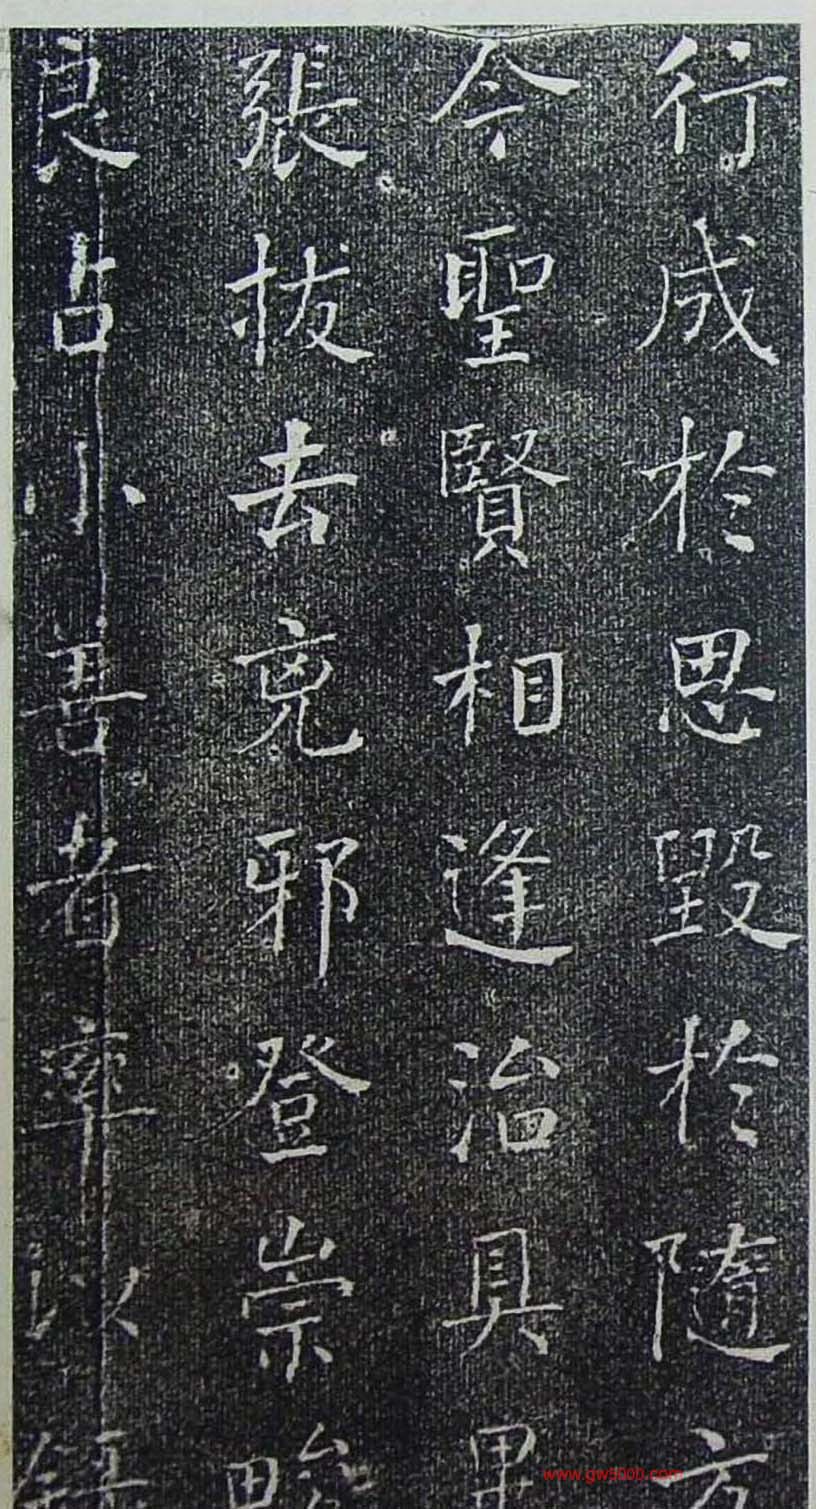 行成於思毀於隨方
今聖賢相逢治具畢
張拔去兇邪登崇畯
良占小善者率以錄